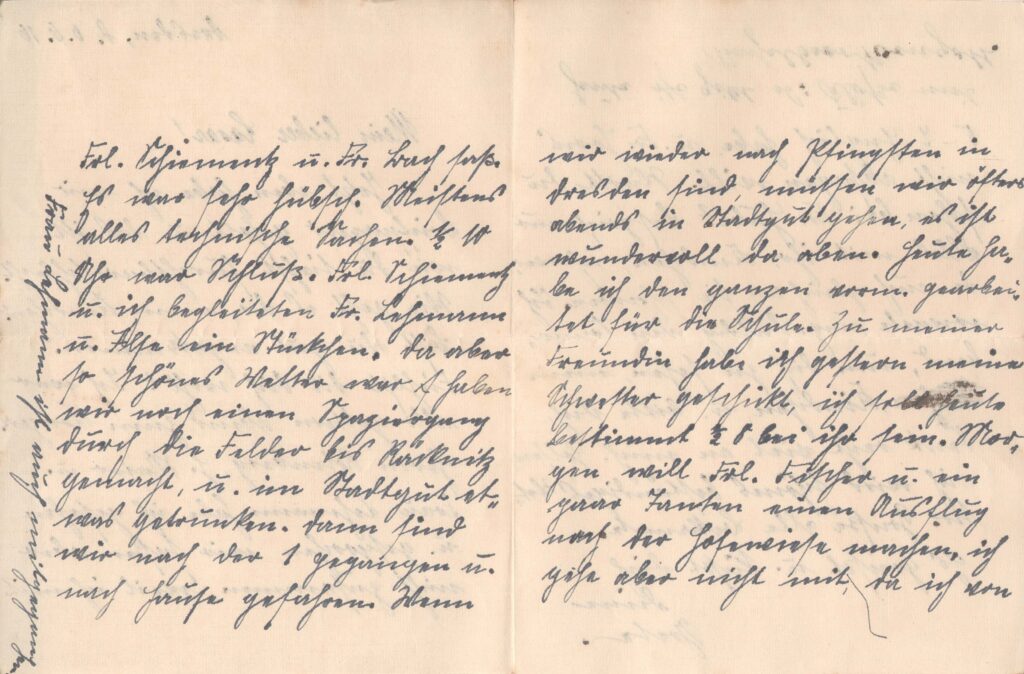 Frl. Schiementz u. Fr. Bach saß.
Es war sehr hübsch. Meistens
alles technische Sachen. ½ 10
Uhr war Schluß. Frl. Schiementz
u. ich begleiteten Fr. Lehmann
u. Ilse ein Stückchen. Da aber
so schönes Wetter war haben
wir noch einen Spaziergang
durch die Felder bis Racknitz
gemacht, u. im Stadtgut et-
was getrunken. Dann sind
wir nach der 1 gegangen u.
nach Hause gefahren. Wenn
Frau Lehmann ist auch mitgegangen
wir wieder nach Pfingsten in
Dresden sind, müssen wir öfters
abends in Stadtgut gehen, es ist
wundervoll da oben. Heute ha-
be ich den ganzen vorm. gearbei-
tet für die Schule. Zu meiner
Freundin habe ich gestern meine
Schwester geschickt, ich soll heute
bestimmt ½ 8 bei ihr sein. Mor-
gen will Frl. Fischer u. ein
paar Tanten einen Ausflug
nach der Hofewiese machen, ich
gehe aber nicht mit, da ich von